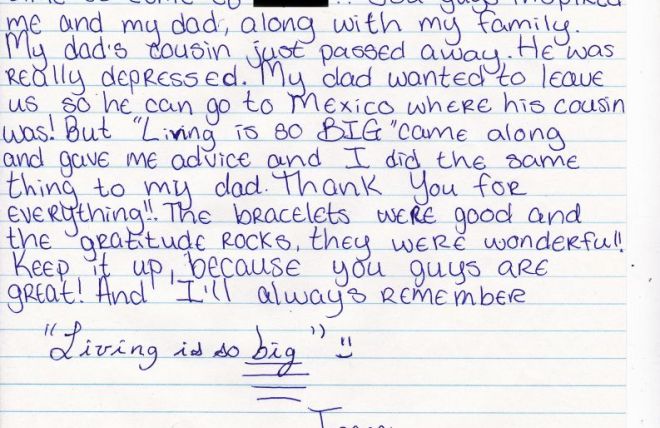 me and my dad, along with my family.
My dad's cousin just passed away. He was
REally depressed. My dad wanted to leave
us so he can go to Mexico where his cousin
was! But "Living is so BIG" came along
and gave me advice and I did the same
thing to my dad. Thank You for
EVERything!!. The bracelets were good and
the gratitude Rocks, they were wonderful!!
Keep it up, because you guys are
great! And I'll always remember
"Living is so big" :)